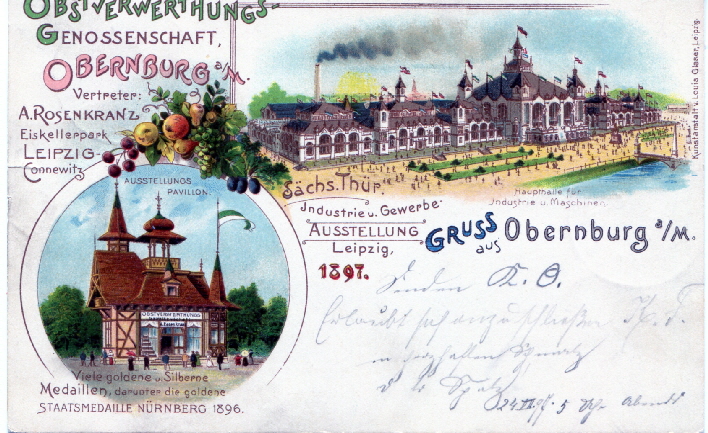 OBSTVERWERTHUNGS-
GENOSSENSCHAFT,
OBERNBURG a/M.
Vertreter:
A. ROSENKRANZ
Eiskellerpark
LEIPZIG-
Connewitz
AUSSTELLUNGS
PAVILLON.
OBSTVERWERTHUNGS
Viele goldene u. Silberne
Medaillen, darunter die goldene
STAATSMEDAILLE NÜRNBERG 1896.
Sächs. Thür.
Industrie u. Gewerbe
AUSSTELLUNG
Leipzig,
1897.
Haupthalle für
Industrie u. Maschinen.
Kunstanstalt v. Louis Glaser, Leipzig.
GRUSS
aus
Obernburg a/M.
K. O.
Erlaubt sich anzuschließen
5 Uhr Abends